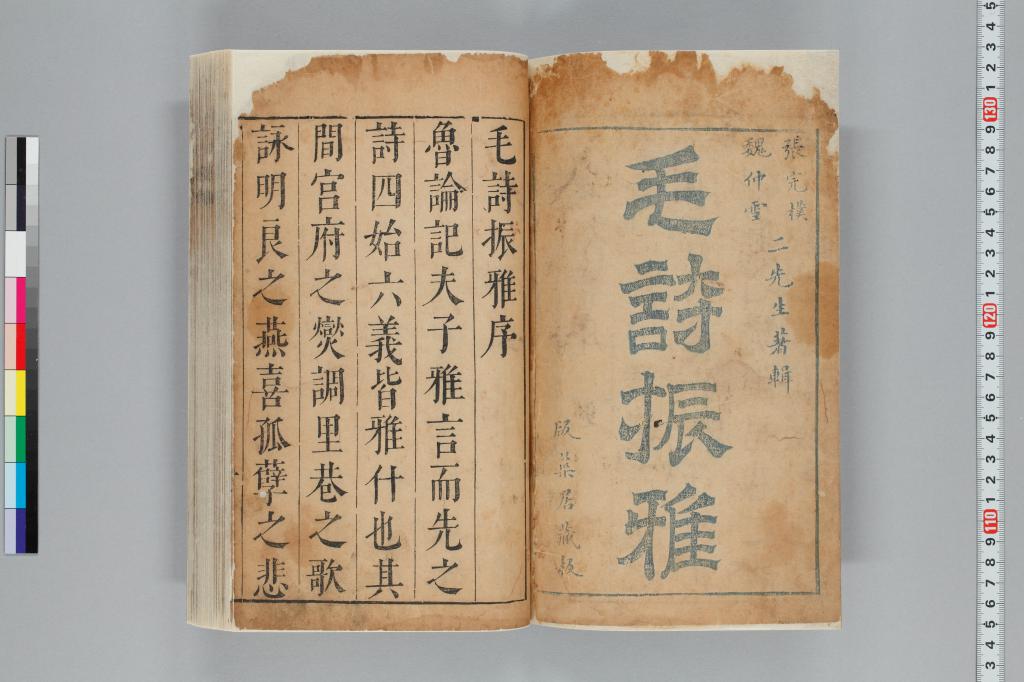 張完樸
魏仲雪
二先生著輯
毛詩振雅
版築居藏板
毛詩振雅序
魯論記夫子雅言而先之
詩四始六義皆雅什也其
間宮府之爕調里巷之歌
詠明良之燕喜孤孽之悲